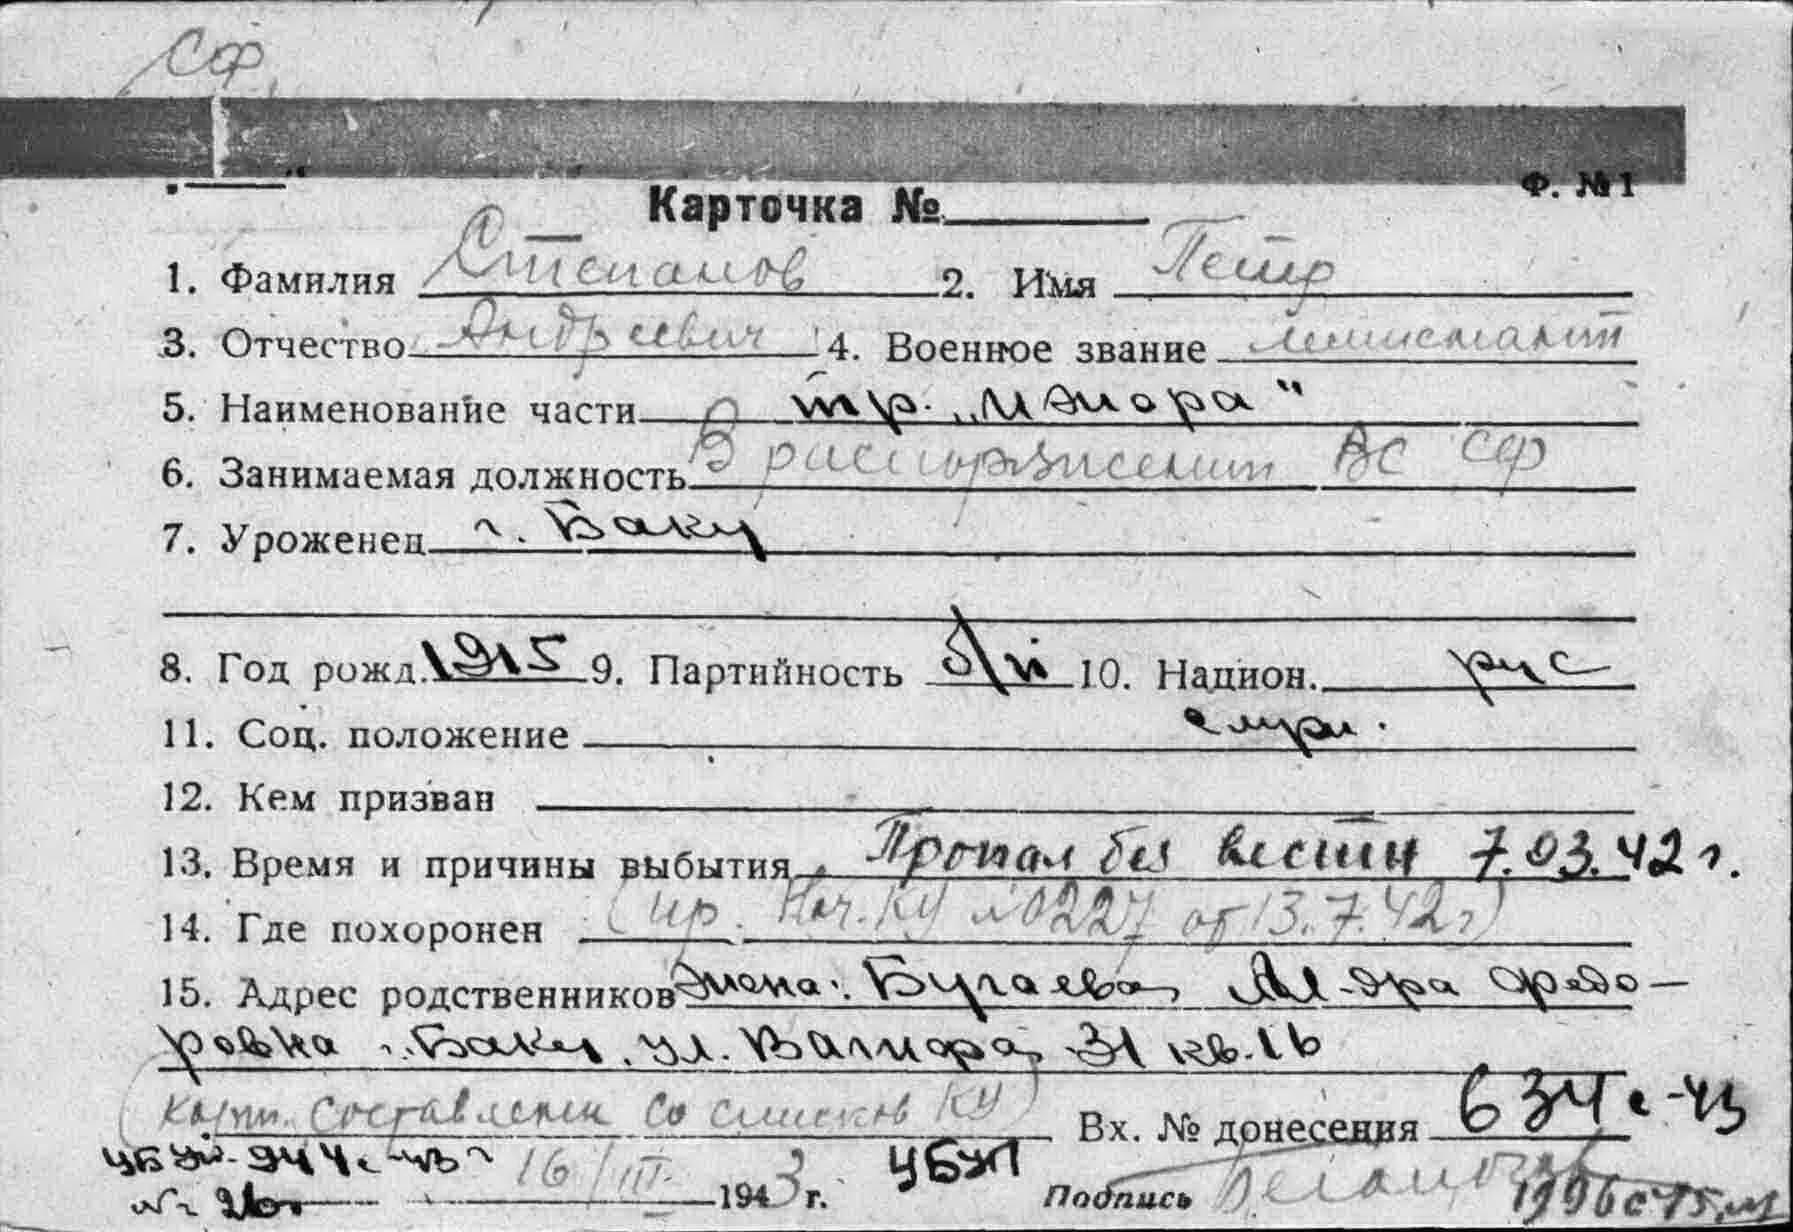 СФ
Ф. №1
Карточка №
1. Фамилия Степанов 2. Имя Петр
3. Отчество Андреевич 4. Военное звание лейтенант
5. Наименование части тр. „Ижора“
6. Занимаемая должность В распоряжении ВС СФ
7. Уроженец г. Баку
8. Год рожд. 1915 9. Партийность б/п 10. Национ. рус
11. Соц. положение служ.
12. Кем призван
13. Время и причины выбытия Пропал без вести 7.03.42 г.
14. Где похоронен (пр. Нач. КУ №0227 от 13.7.42 г)
15. Адрес родственников жена: Бугаева Ал-дра Федо-
ровна г. Баку, ул. 31 кв. 16
(карт. составлена со списков КУ) Вх. № донесения 634с-43
944с-43 г 16/III 1943 г. УБУП
№ 26 Подпись 1996с